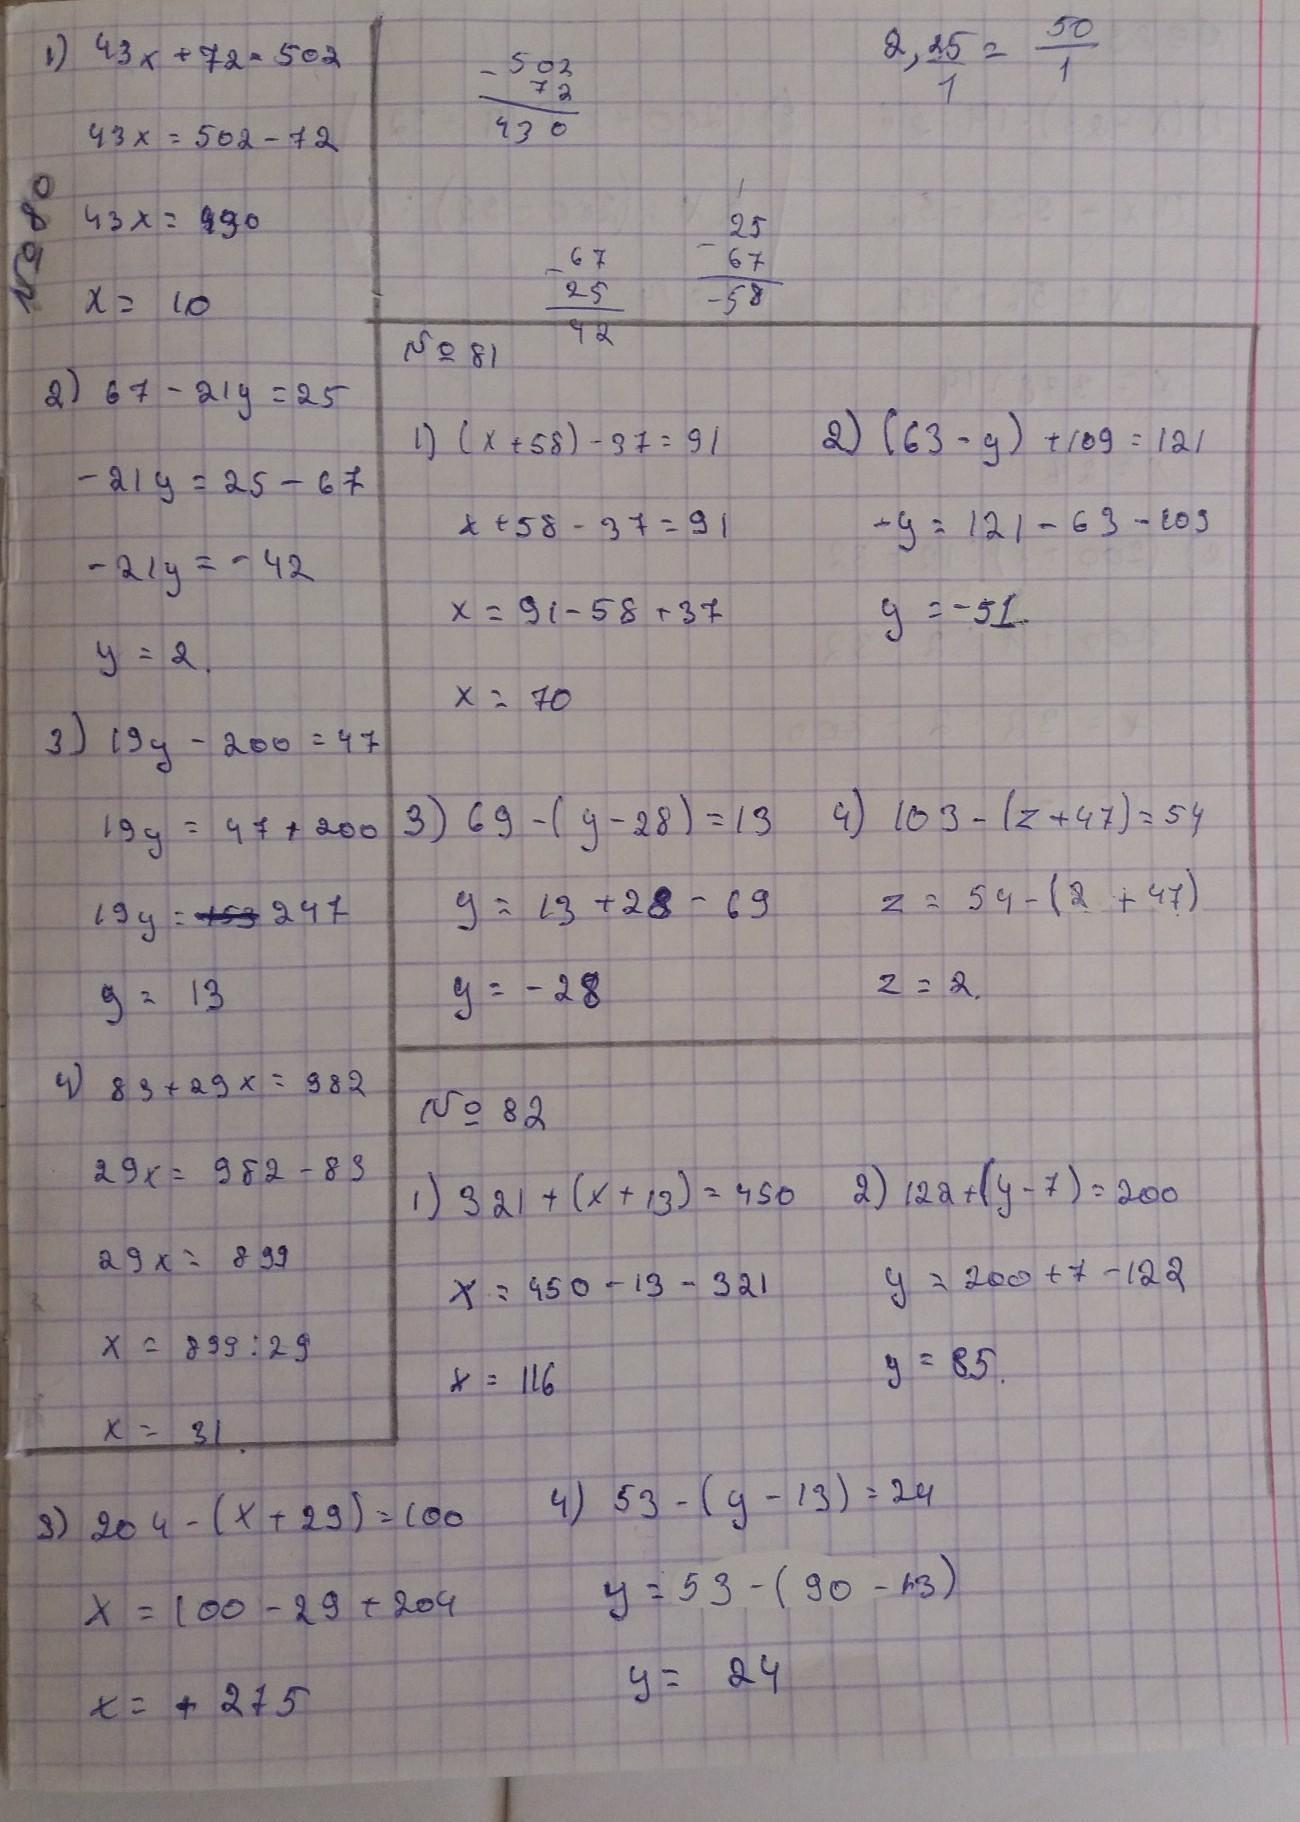 №80
1) 43x + 72 = 502
43x = 502 - 72
43x = 430
x = 10
2) 67 - 21y = 25
-21y = 25 - 67
-21y = -42
y = 2.
3) 19y - 200 = 47
19y = 47 + 200
19y = 247
y = 13
4) 83 + 29x = 982
29x = 982 - 83
29x = 899
x = 899 : 29
x = 31.
- 502
72
430
2,25/1 = 50/1
- 67
25
42
1
- 25
67
-58
№81
1) (x + 58) - 37 = 91
x + 58 - 37 = 91
x = 91 - 58 + 37
x = 70
2) (63 - y) + 109 = 121
-y = 121 - 63 - 109
y = -51.
3) 69 - (y - 28) = 13
y = 13 + 28 - 69
y = -28
4) 103 - (z + 47) = 54
z = 54 - (2 + 47)
z = 2.
№82
1) 321 + (x + 13) = 450
x = 450 - 13 - 321
x = 116
2) 122 + (y - 7) = 200
y = 200 + 7 - 122
y = 85.
3) 204 - (x + 29) = 100
x = 100 - 29 + 204
x = + 275
4) 53 - (y - 13) = 24
y = 53 - (90 - 13)
y = 24